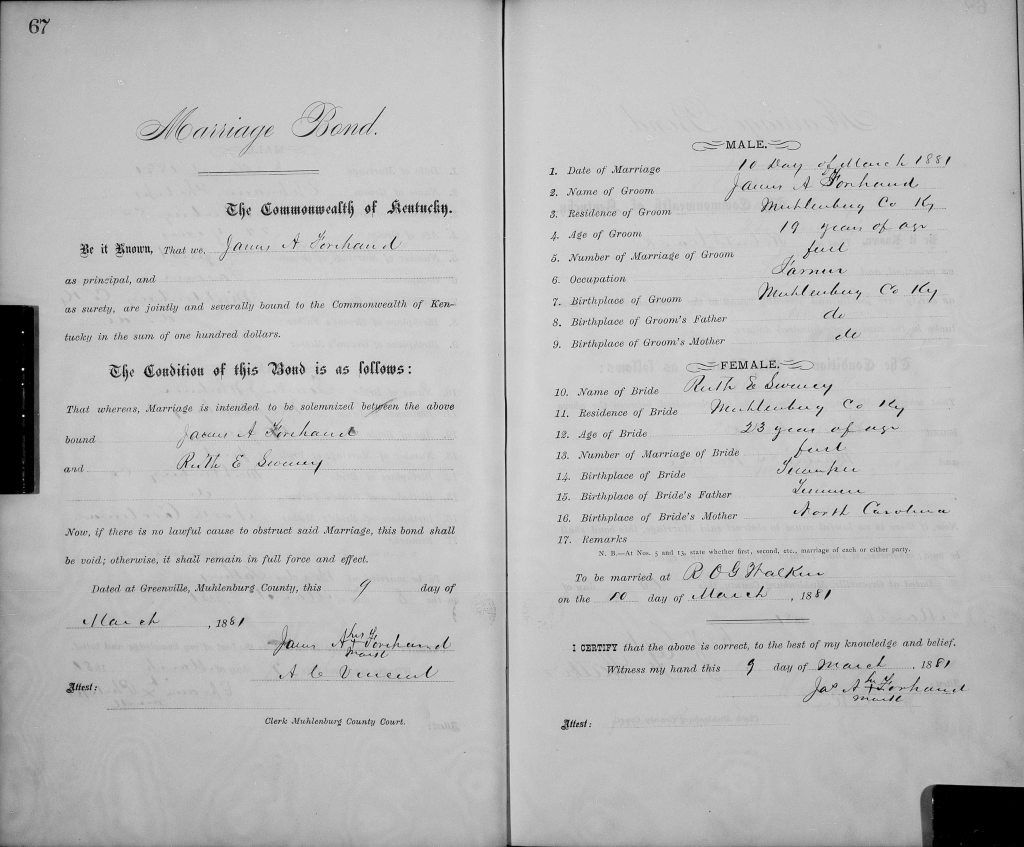 67
Marriage Bond.
The Commonwealth of Kentucky.
Be it Known, That we, James A Forehand
as principal, and
as surety, are jointly and severally bound to the Commonwealth of Ken-
tucky in the sum of one hundred dollars.
The Condition of this Bond is as follows:
That whereas, Marriage is intended to be solemnized between the above
bound James A Forehand
and Ruth E Sweney
Now, if there is no lawful cause to obstruct said Marriage, this bond shall
be void; otherwise, it shall remain in full force and effect.
Dated at Greenville, Muhlenburg County, this 9 day of
March, 1881
his
James A + Forehand
mark
A C Vincent
Attest:
Clerk Muhlenburg County Court.
MALE.
1. Date of Marriage 10 Day of March 1881
2. Name of Groom James A Forehand
3. Residence of Groom Muhlenburg Co Ky
4. Age of Groom 19 years of age
5. Number of Marriage of Groom first
6. Occupation Farmer
7. Birthplace of Groom Muhlenburg Co Ky
8. Birthplace of Groom's Father do
9. Birthplace of Groom's Mother do
FEMALE.
10. Name of Bride Ruth E Sweney
11. Residence of Bride Muhlenburg Co Ky
12. Age of Bride 23 years of age
13. Number of Marriage of Bride first
14. Birthplace of Bride
15. Birthplace of Bride's Father
16. Birthplace of Bride's Mother North Carolina
17. Remarks
N. B.—At Nos. 5 and 13, state whether first, second, etc., marriage of each or either party.
To be married at R O G Walker
on the 10 day of March, 1881
I CERTIFY that the above is correct, to the best of my knowledge and belief.
Witness my hand this 9 day of March, 1881
his
Jas A + Forhand
mark
Attest: